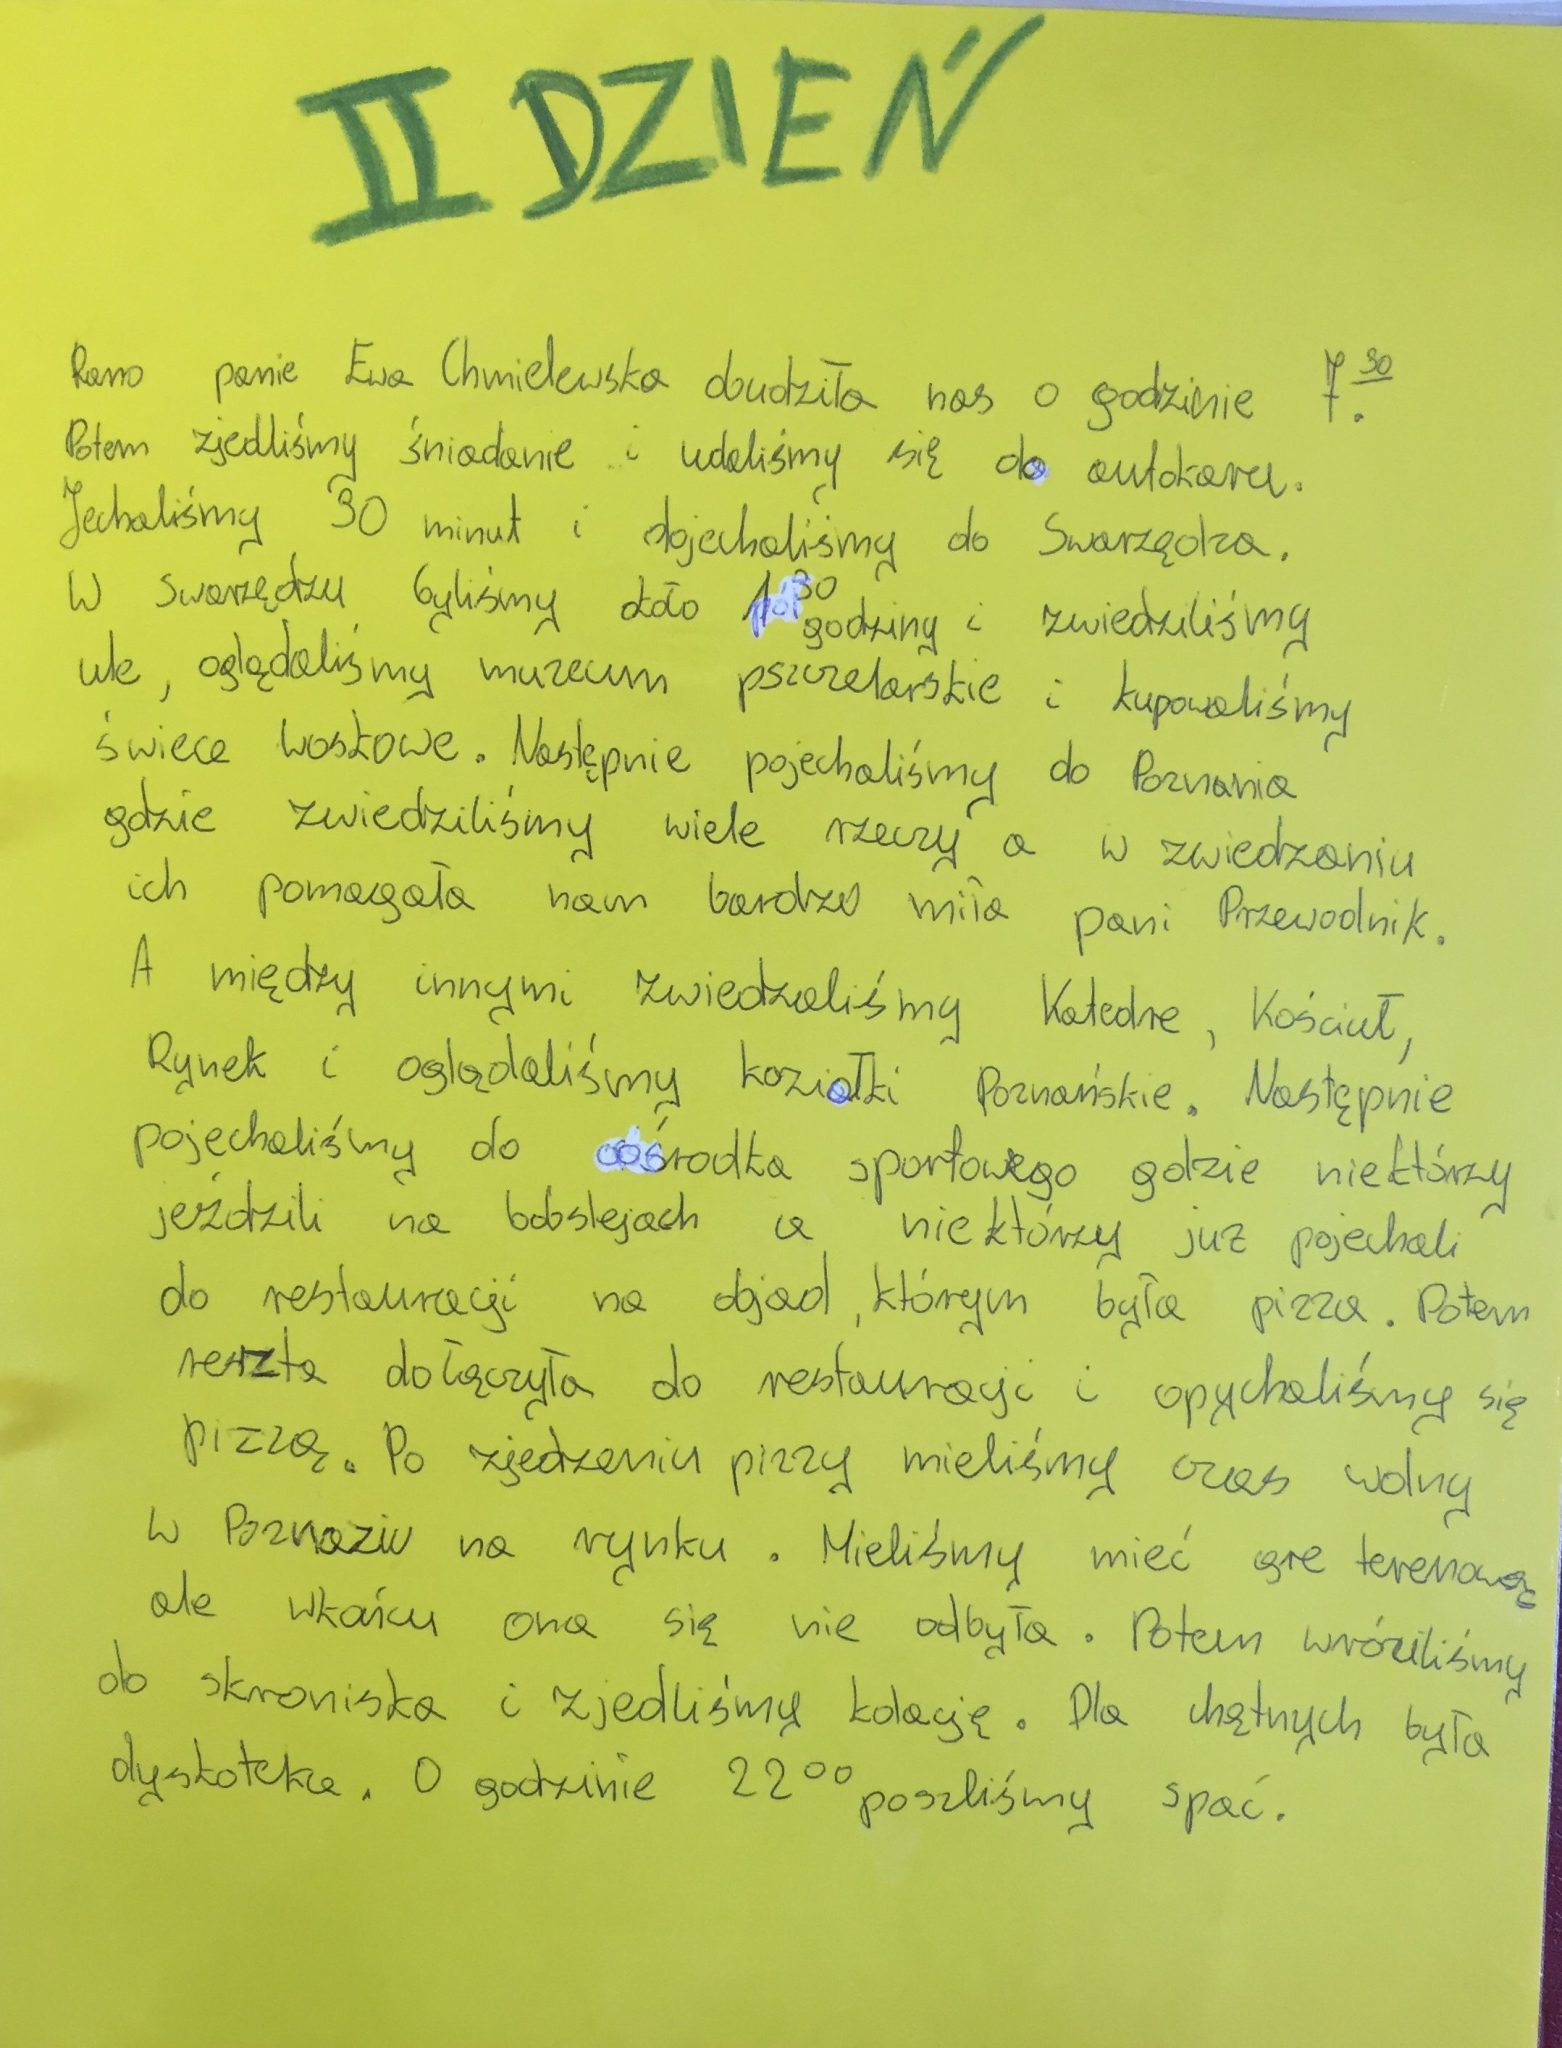 II DZIEŃ
Rano panie Ewa Chmielewska obudziła nas o godzinie 7.30
Potem zjedliśmy śniadanie i udaliśmy się do autokaru.
Jechaliśmy 30 minut i dojechaliśmy do Swarzędza.
W Swarzędzu byliśmy około 1 30 godziny i zwiedziliśmy
ule, oglądaliśmy muzeum pszczelarskie i kupowaliśmy
świece woskowe. Następnie pojechaliśmy do Poznania
gdzie zwiedziliśmy wiele rzeczy a w zwiedzaniu
ich pomagała nam bardzo miła pani Przewodnik.
A między innymi zwiedzaliśmy Katedre, Kościuł,
Rynek i oglądaliśmy koziołki Poznańskie. Następnie
pojechaliśmy do ośrodka sportowego gdzie niektórzy
jeździli na bobslejach a niektórzy juz pojechali
do restauracji na objad, którym była pizza. Potem
reszta dołączyła do restauracji i opychaliśmy się
pizzą. Po zjedzeniu pizzy mieliśmy czas wolny
w na rynku. Mieliśmy mieć gre terenową
ale wkońcu ona się nie odbyła. Potem wróciliśmy
do skroniska i zjedliśmy kolację. Dla chętnych była
dyskoteka. O godzinie 22 00 poszliśmy spać.